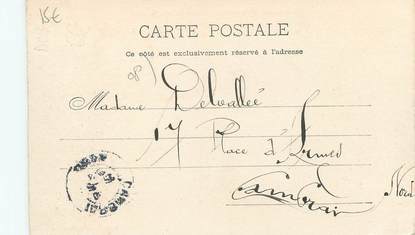 15€
CARTE POSTALE
Ce côté est exclusivement réservé à l'adresse
Madame Delvallée
17 Place d'Armes
Cambrai Nord
CAMBRAI
NORD